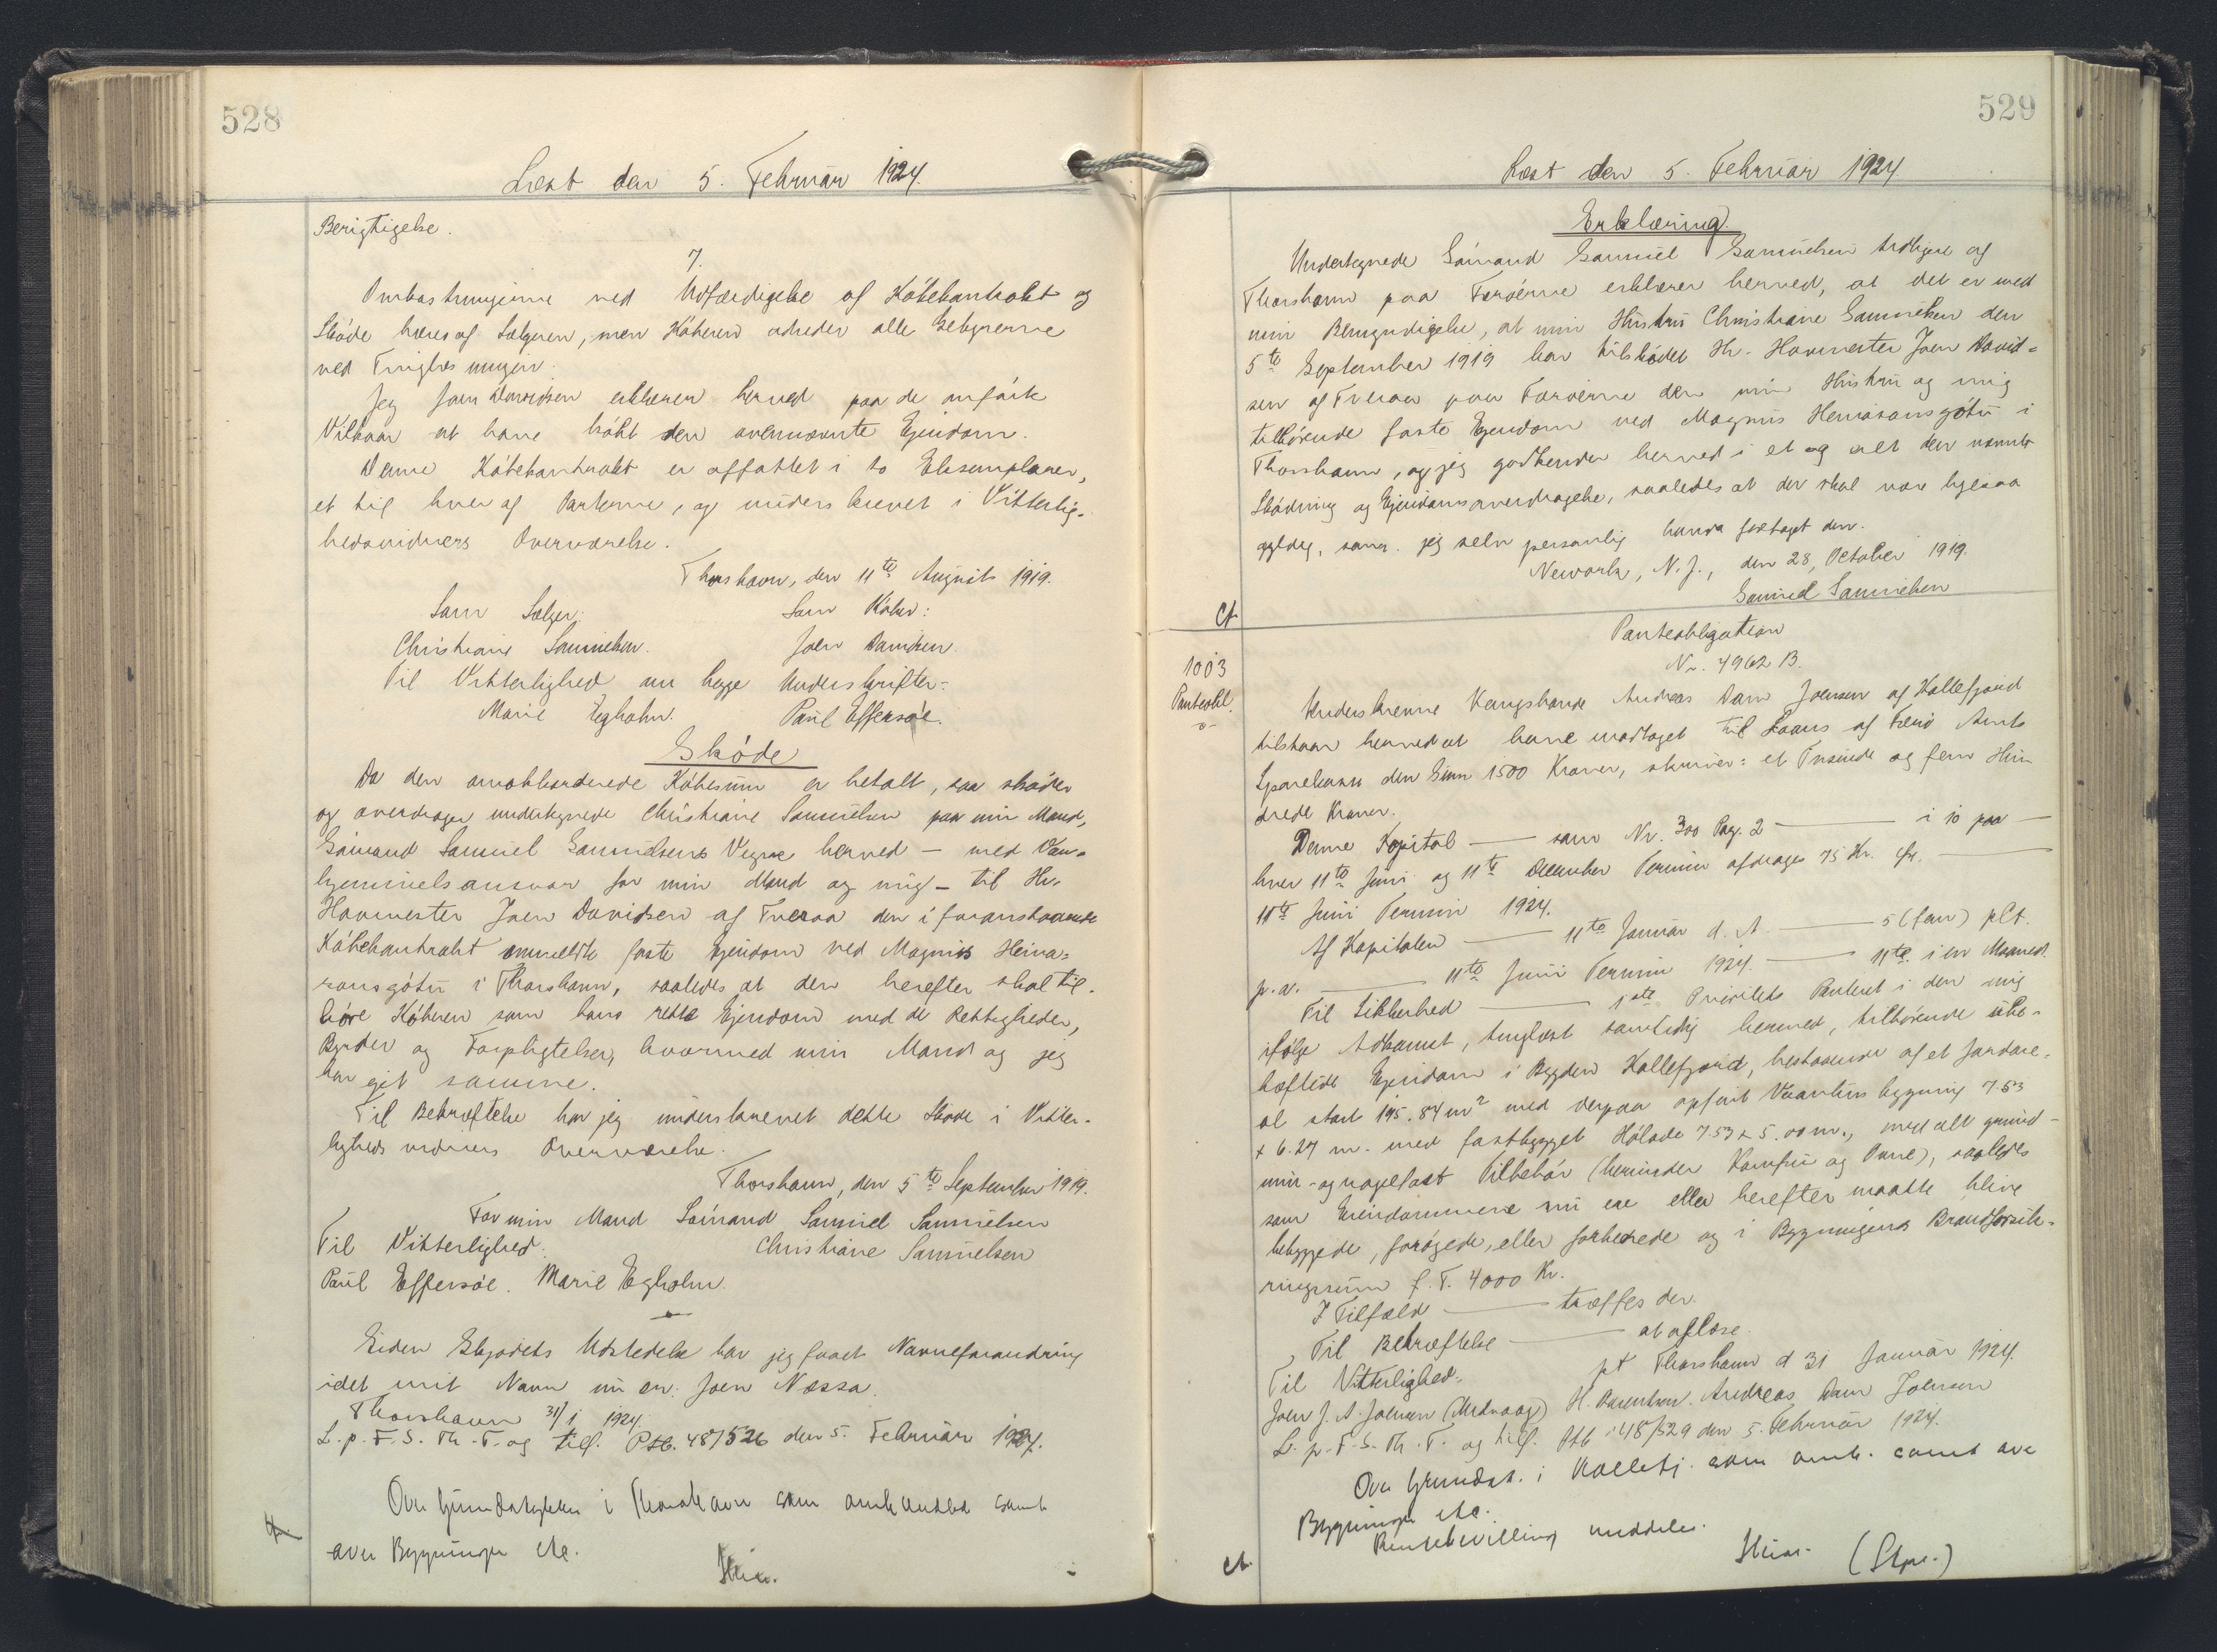 528
Læst den 5. Februar 1924.
Berigtigelse.
7.
Omkostningerne ved Udfærdigelse af Købekontrakt og
Skøde bæres af Sælgeren, men Køberen udreder alle Gebyrerne
ved Tinglæsningen.
Jeg Joen Davidsen erklærer herved paa de anførte
Vilkaar at have købt den ovennævnte Ejendom.
Denne Købekontrakt er affattet i to Eksemplarer,
et til hver af Parterne, og underskrevet i Vitterlig-
hedsvidners Overværelse.
Thorshavn, den 11te August 1919.
Som Sælger: Som Køber:
Christiane Samuelsen. Joen Davidsen.
Til Vitterlighed om begge Underskrifter:
Marie Egholm. Paul Effersøe.
Skøde
Da den omakkorderede Købesum er betalt, saa skøder
og overdrager undertegnede Christiane Samuelsen paa min Mand,
Sømand Samuel Samuelsens Vegne herved — med Van-
hjemmelsansvar for min Mand og mig — til Hr.
Havnester Joen Davidsen af Tveraa den i foranstaaende
Købekontrakt ommeldte faste Ejendom ved Magnus Heina-
sonsgøtu i Thorshavn, saaledes at den herefter skal til-
høre Køberen som hans rette Ejendom med de Rettigheder,
Byrder og Forpligtelser, hvormed min Mand og jeg
har ejet samme.
Til Bekræftelse har jeg underskrevet dette Skøde i Vitter-
ligheds vidners Overværelse.
Thorshavn, den 5te September 1919.
For min Mand Sømand Samuel Samuelsen
Til Vitterlighed: Christiane Samuelsen
Paul Effersøe. Marie Egholm.
Siden Skjødets Udstedelse har jeg faaet Navneforandring
idet mit Navn nu er: Joen Næssa.
Thorshavn 31/1 1924.
L. p. F. S. Th. T. og tilf. Ptb. 48/526 den 5. Februar 1924.
Over Grundstykket i Thorshavn som omhandlet samt
over Bygninger etc.
529
Læst den 5. Februar 1924
Erklæring.
Undertegnede Sømand Samuel Samuelsen tidligere af
Thorshavn paa Færøerne erklærer herved, at det er med
min Bemyndigelse, at min Hustru Christiane Samuelsen den
5te September 1919 har tilskødet Hr. Havnester Joen David-
sen af Tveraa paa Færøerne den min Hustru og mig
tilhørende faste Ejendom ved Magnus Heinasonsgøtu i
Thorshavn, og jeg godkender herved i et og alt den nævnte
Skødning og Ejendomsoverdragelse, saaledes at den skal være ligesaa
gyldig, som jeg selv personlig havde foretaget den.
Newark, N. J., den 28, October 1919.
Samuel Samuelsen
Ct.
1003
Panteobl.
Panteobligation
Nr. 4962 B.
Underskrevne Kongsbonde Andreas Dam Joensen af Kollefjord
tilstaar herved at have modtaget til Laans af Færø Amts
Sparekasse den Sum 1500 Kroner, skriver: et Tusinde og fem Hun
drede Kroner.
Denne Kapital — som Nr. 300 Pag. 2 — i 10 paa —
hver 11te Juni og 11te December Termin afdrages 75 Kr. —
11te Juni Termin 1924.
Af Kapitalen — 11te Januar d. A. — 5 (fem) pCt.
p. a. — 11te Juni Termin 1924. — 11te i en Maaned.
Til Sikkerhed — 1ste Prioritets Panteret i den mig
ifølge Adkomst, tinglæst samtidig hermed, tilhørende ube-
hæftede Ejendom i Bygden Kollefjord, bestaaende af et Jordare-
al stort 195.84 m² med derpaa opført Vaaningsbygning 7.53
x 6.27 m. med fastbygget Hølade 7.53 x 5.00 m., med alt grund-
mur- og nagelfast Tilbehør (herunder Komfur og Ovne), saaledes
som Ejendommene nu ere eller herefter maatte blive
bebyggede, forøgede, eller forbedrede og i Bygningens Brandforsik-
ringssum f. T. 4000 Kr.
I Tilfæld — træffes der.
Til Bekræftelse — at aflæse.
Til Vitterlighed: pt Thorshavn d 31 Januar 1924.
Joen J. A. Joensen H. Davidsen. Andreas Dam Joensen
L. p. F. S. Th. T. og tilf. Ptb 48/529 den 5. Februar 1924.
Over Grundst. i Kollefj. som omh. samt ove
Bygninger etc.
Rentebevilling meddeles.
Ct.